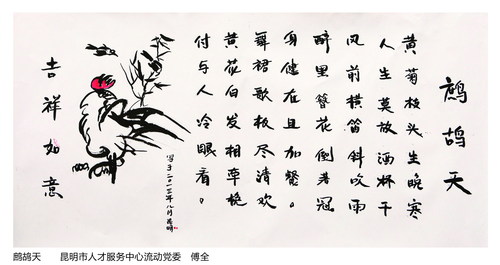 鹧鸪天
黄菊枝头生晓寒
人生莫放酒杯干
风前横笛斜吹雨
醉里簪花倒着冠
身健在且加餐。
舞裙歌板尽清欢
黄花白发相牵挽
付与人冷眼看。
吉祥如意
鹧鸪天 昆明市人才服务中心流动党委 傅全